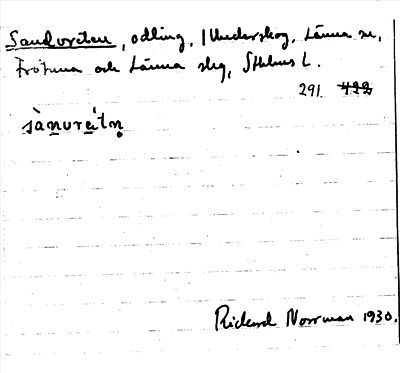 Sandvreten, odling, i Underskog, Länna sn,
Frötuna och Länna slg, Sthlms L.
291. 422
sànvrétn̥
Rickard Norrman 1930.